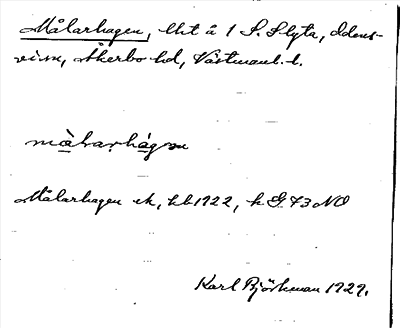 Målarhagen, lht å 1 S. Slyta, Odens-
visa, Åkerbo hd, Västmanl. l.
målarhágen
Målarhagen ek, hb 1922, k G. 73 NO
Karl Björkman 1929.